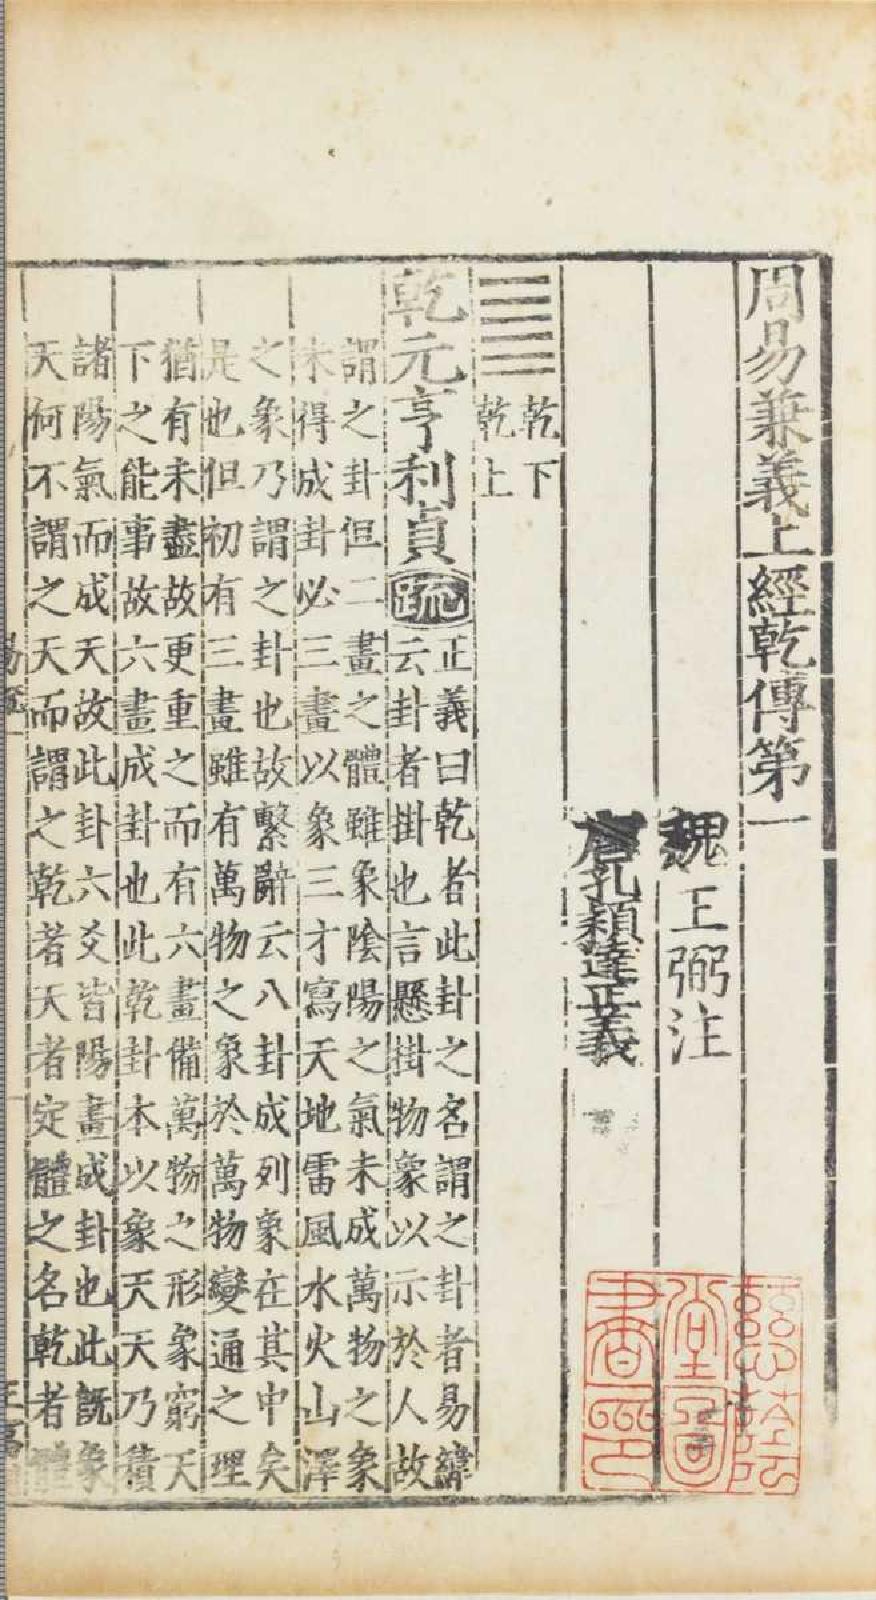 周易兼義上經乾傳第一
魏 王弼注
唐孔穎達正義
乾下
乾上
乾元亨利貞疏
正義曰乾者此卦之名謂之卦者易緯
云卦者掛也言懸掛物象以示於人故
謂之卦但二畫之體雖象陰陽之氣未成萬物之象
未得成卦必三畫以象三才寫天地雷風水火山澤
之象乃謂之卦也故繫辭云八卦成列象在其中矣
是也但初有三畫雖有萬物之象於萬物變通之理
猶有未盡故更重之而有六畫備萬物之形象窮天
下之能事故六畫成卦也此乾卦本以象天天乃積
諸陽氣而成天故此卦六爻皆陽畫成卦也此既象
天何不謂之天而謂之乾者天者定體之名乾者體